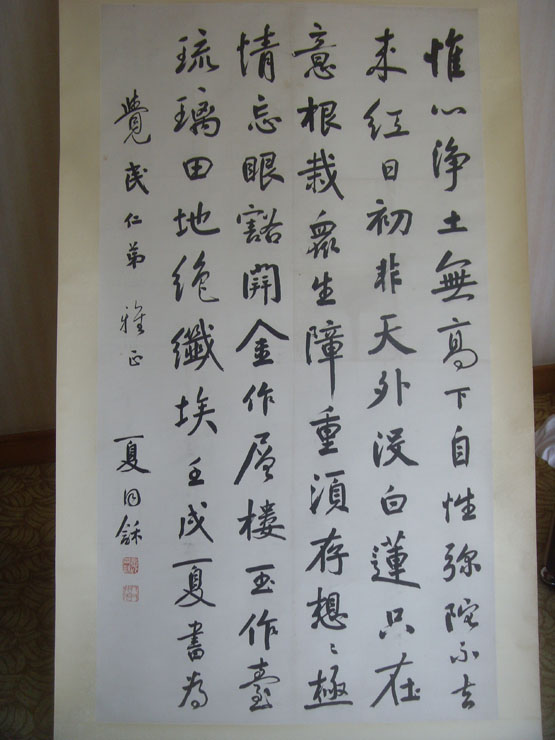 惟心淨土無高下自性弥陀不去
来红日初非天外没白蓮只在
意根栽眾生障重須存想〻極
情忘眼豁開金作層樓玉作臺
琉璃田地絶纖埃壬戌夏書為
覺民仁弟雅正
夏同龢